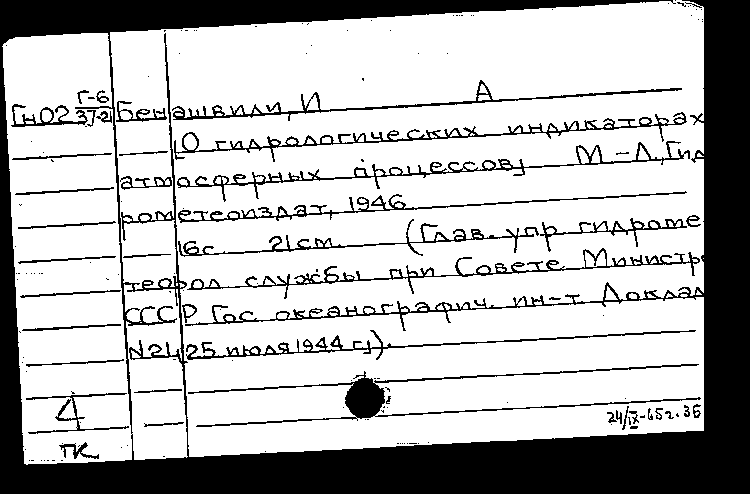 Гн02 Г-6 Бенашвили, И А
37-2
[О гидрологических индикаторах
атмосферных процессов] М-Л., Гид
рометеоиздат, 1946.
16с. 21см. (Глав. упр гидроме
теорол службы при Совете Министр
СССР Гос океанографич. ин-т Доклад
N21, 25 июля 1944 г]).
4
ПК
24/IX-65г. 36